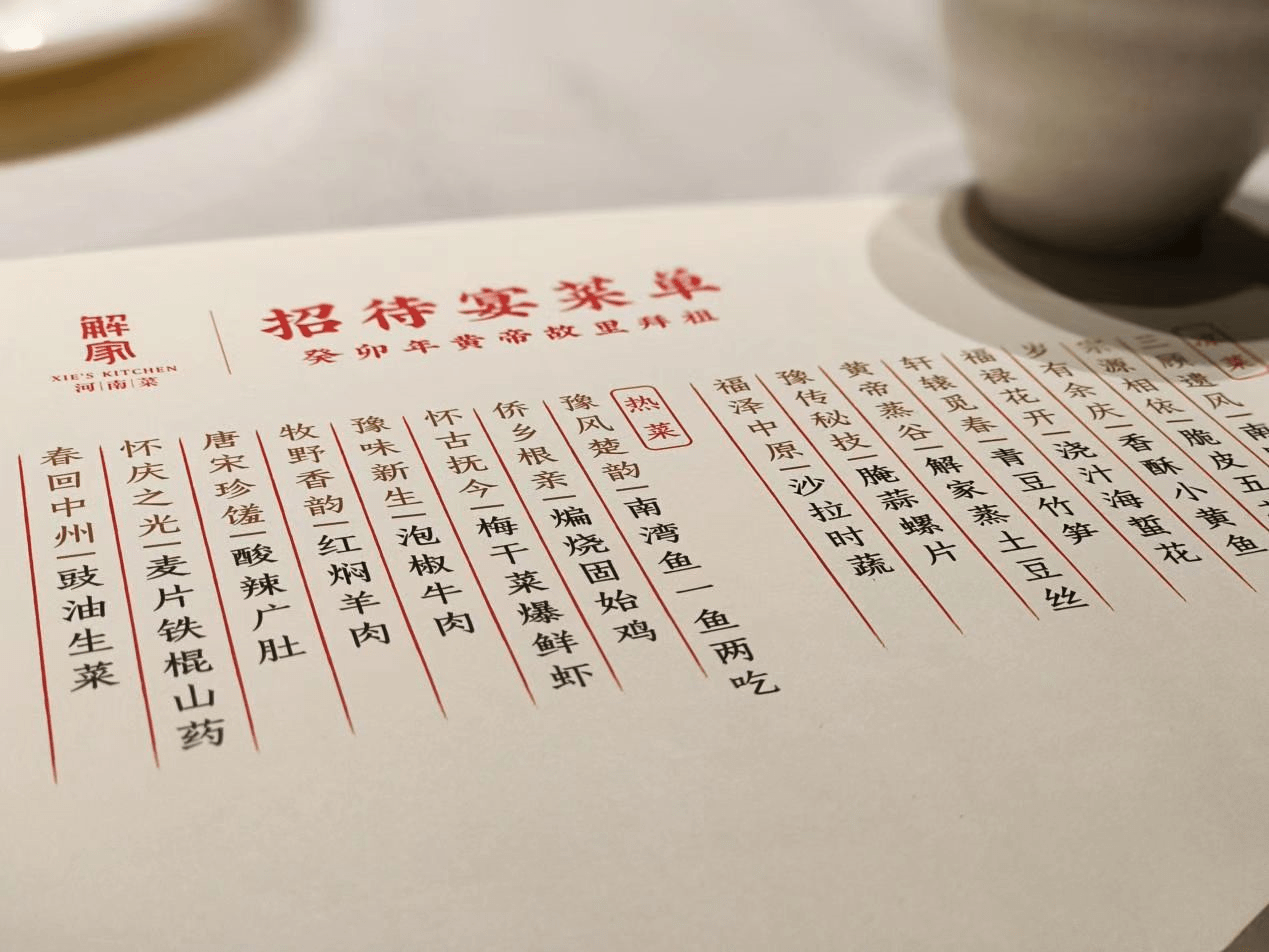 解家
XIE'S KITCHEN
河|南|菜
招待宴菜单
癸卯年黄帝故里拜祖
菜
三顾遗风|南
家源相依|脆皮五
岁有余庆|香酥小黄鱼
福禄花开|浇汁海蜇花
轩辕觅春|青豆竹笋
黄帝蒸谷|解家蒸土豆丝
豫传秘技|腌蒜螺片
福泽中原|沙拉时蔬
热菜
豫风楚韵|南湾鱼一鱼两吃
侨乡根亲|煸烧固始鸡
怀古抚今|梅干菜爆鲜虾
豫味新生|泡椒牛肉
牧野香韵|红焖羊肉
唐宋珍馐|酸辣广肚
怀庆之光|麦片铁棍山药
春回中州|豉油生菜